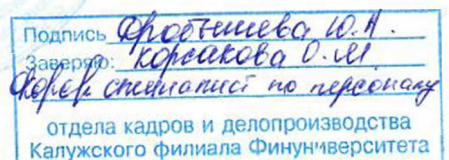 Подпись Дробышева Ю.А.
Заверяю: Корсакова О.М
специалист по персоналу
отдела кадров и делопроизводства
Калужского филиала Финуниверситета